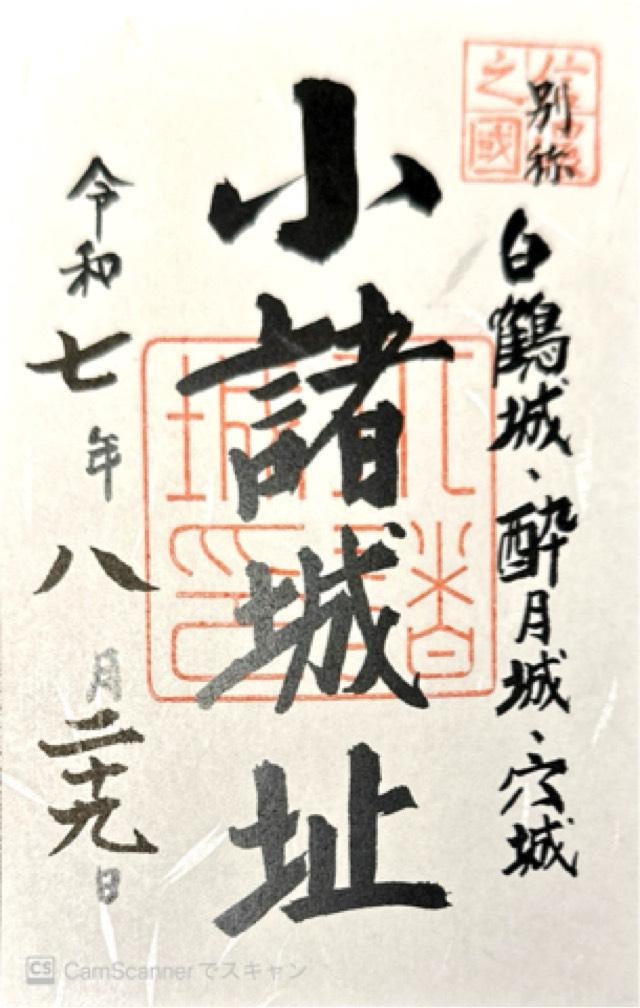 別称 白鶴城、酔月城、穴城
信濃之國
小諸城址
小諸城印
令和七年八月二十九日
CS CamScannerでスキャン